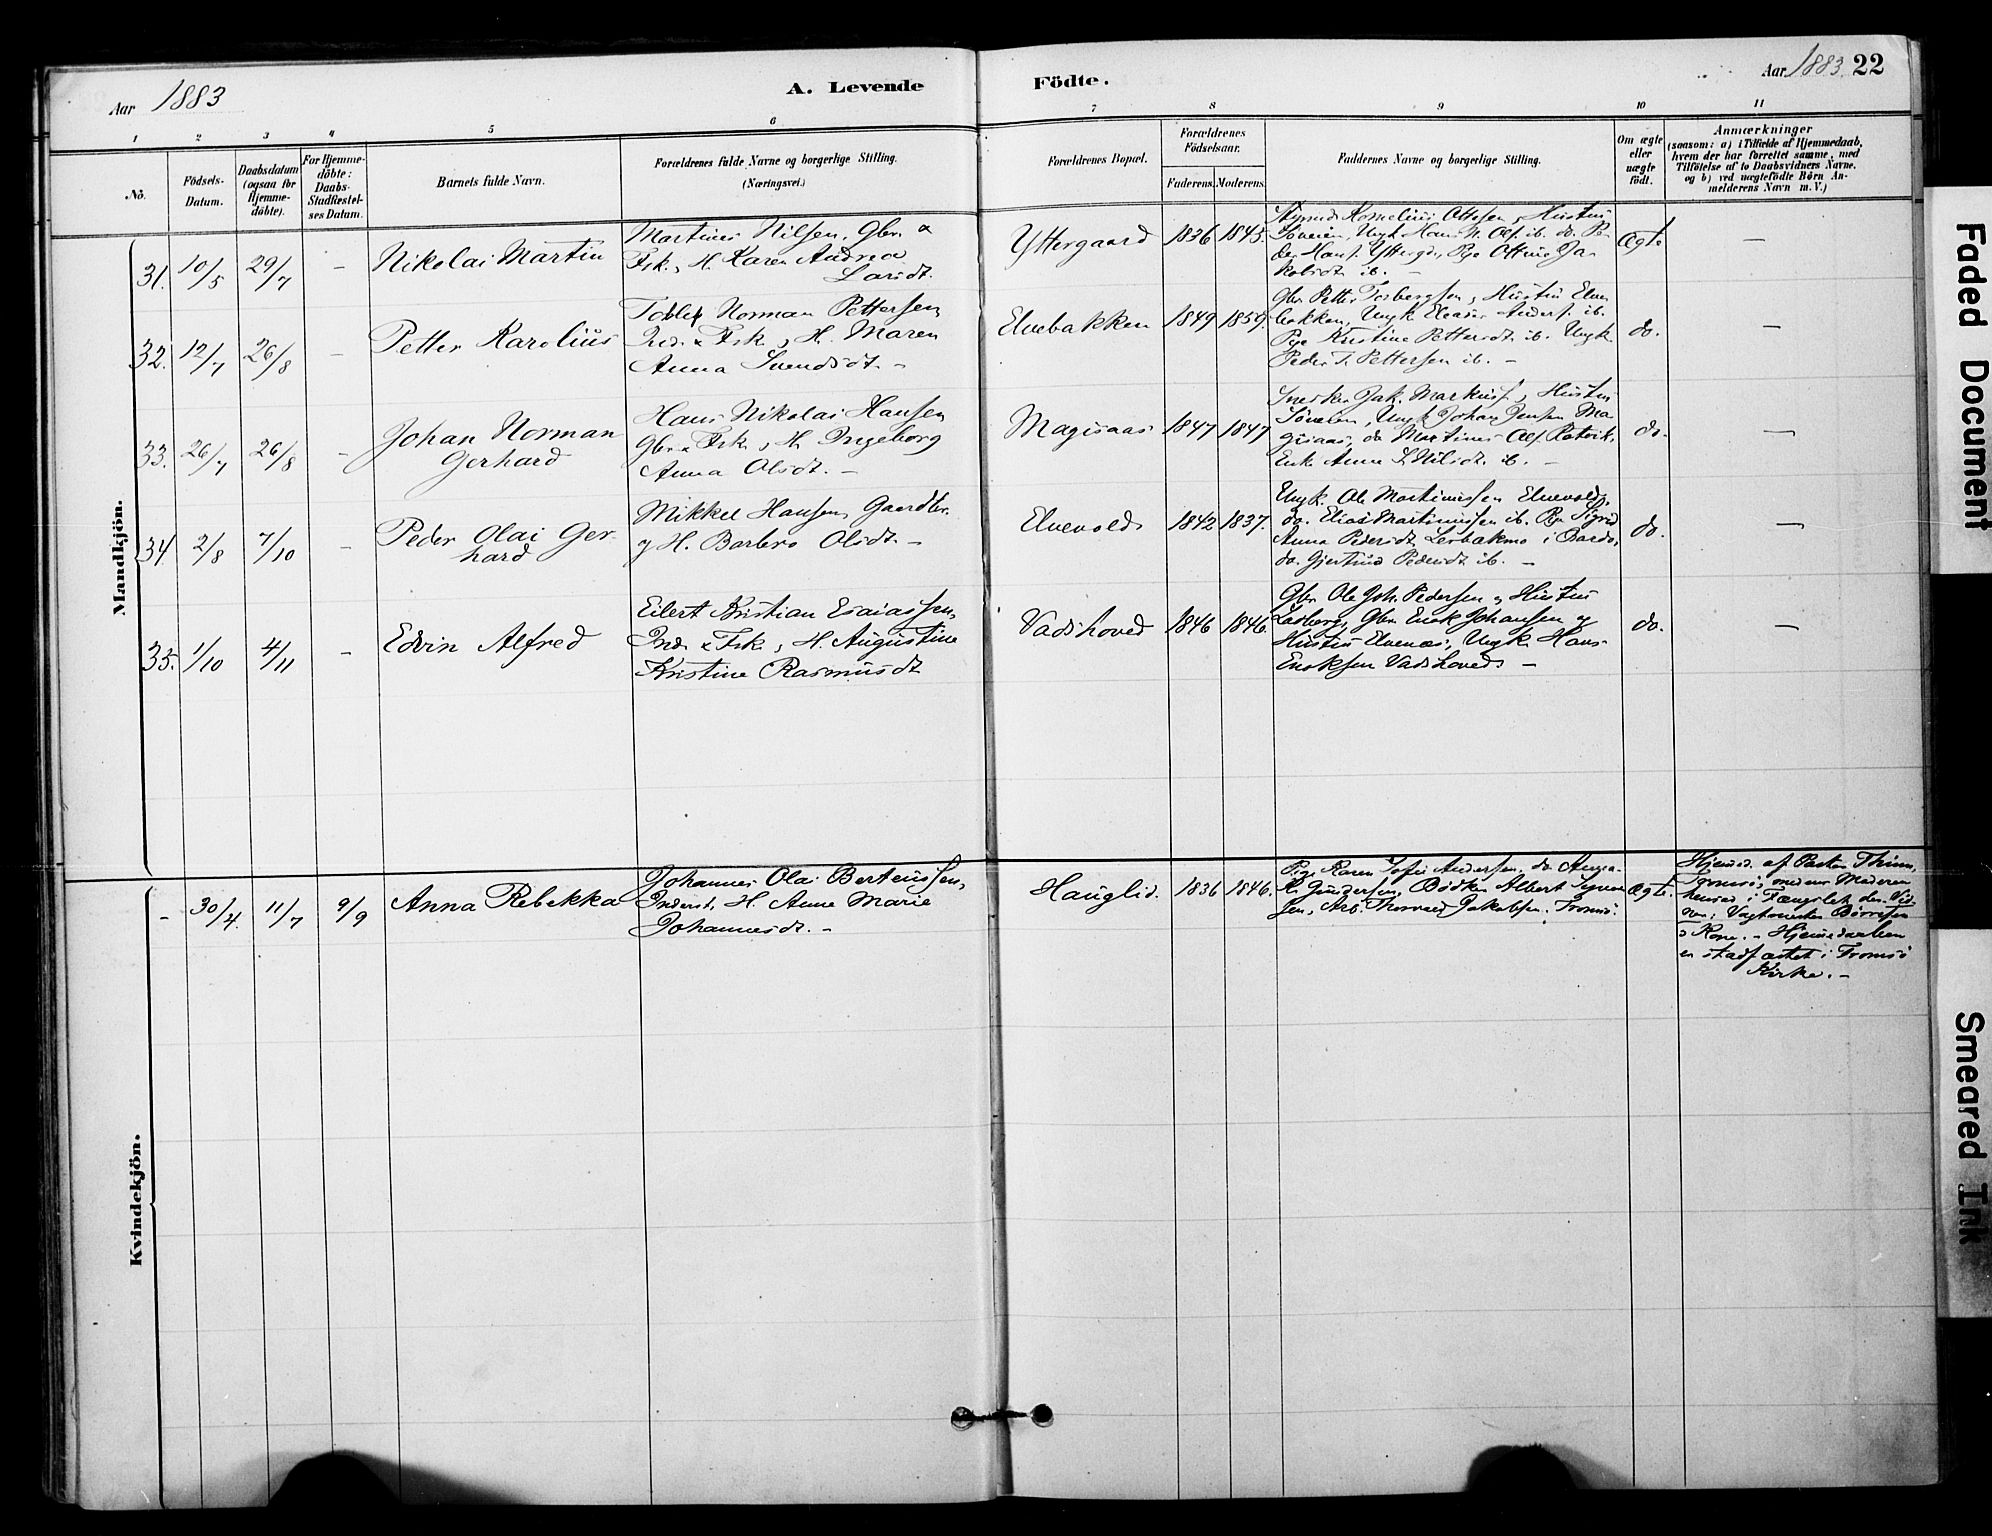 Aar 1883
A. Levende
Födte.
Aar 1883. 22
1 2 3 4 5 6 7 8 9 10 11
No.
Födsels-
Datum.
Daabsdatum
(ogsaa for
Hjemme-
döbte).
For Hjemme-
döbte:
Daabs-
Stadfæstel-
ses Datum.
Barnets fulde Navn.
Forældrenes fulde Navne og borgerlige Stilling.
(Næringsvei.)
Forældrenes Bopæl.
Forældrenes
Födselsaar.
Faderens. Moderens.
Faddernes Navne og borgerlige Stilling.
Om ægte
eller
uægte
födt.
Anmærkninger
(saasom: a) i Tilfælde af Hjemmedaab,
hvem der har forrettet samme, med
Tilföielse af to Daabsvidners Navne.
og b) ved uægtefödte Börn An-
melderens Navn m. V.)
Mandkjön.
31. 10/5 29/7 – Nikolai Martin
Martines Nilsen, Gbr. &
Fsk., H. Karen Andrea
Larsdt.
Yttergaard 1836 1845.
Kornelius Ottesen, Hustru
ib. do. Pe-
Yttergd., Pige Ottine Ja-
kobsdt. ib. –
Ægte –
32. 12/7 26/8 – Petter Karolius
Norman Pettersen,
Ind. & Fsk., H. Maren
Anna Svendsdt. –
Elvebakken 1849 1859.
Gbr. Petter Torbergsen, Hustru Elve-
bakken, Ungk. Eleaser Anders. ib.
Pige Kristine Pettersdt. ib. Ungk.
Peder T. Pettersen ib. –
do. –
33. 26/7 26/8 – Johan Norman
Gerhard
Hans Nikolai Hansen
Gbr. & Fsk., H. Ingeborg
Anna Olsdt. –
Magisaas 1847 1847
Snedker Jak. Markus., Hustru
Ungk. Johan Jensen Ma-
gisaas, do. Martines
Enke Anna Nilsdt. ib. –
do. –
34 2/8 7/10 – Peder Olai Ger-
hard
Mikkel Hansen, Gaardbr.
og H. Barbro Olsdt. –
Elvevold 1842 1837.
Ungk. Ole Martinussen Elvevold,
do. Elias Martinussen ib. Pige Sigrid
Anna Pedersdt. i Bardo,
do. Gjertrud Pedersdt. ib. –
do. –
35. 1/10 4/11 – Edvin Alfred
Eilert Kristian Esaiassen,
Ind. & Fsk., H. Augustine
Kristine Rasmusdt
Vadshoved 1846 1846.
Gbr. Ole Joh. Pedersen og Hustru
Gbr. Enok Johansen og
Hustru Elvenes, Ungk. Hans
Enoksen Vadshoved. –
do. –
Kvindekjön.
– 30/4. 11/7 9/9 Anna Rebekka
Johannes Olai Berteussen,
Inderst, H. Anne Marie
Johannesdt. –
Hauglid. 1836 1846.
Pige Karen Sofie Andersen, do. Anna
Bödker Albert
sen, Arb. Thorvald Jakobsen. Tromsö.
Ægte.
Hjemmed. af Pastor
Tromsö, medens Moderen
hensad i Fængslet der. Vid-
ner: Vagtmester Börresen
& Kone. – Hjemmedaaben
er stadfæstet i Tromsö
Kirke. –
Faded Document
Smeared Ink